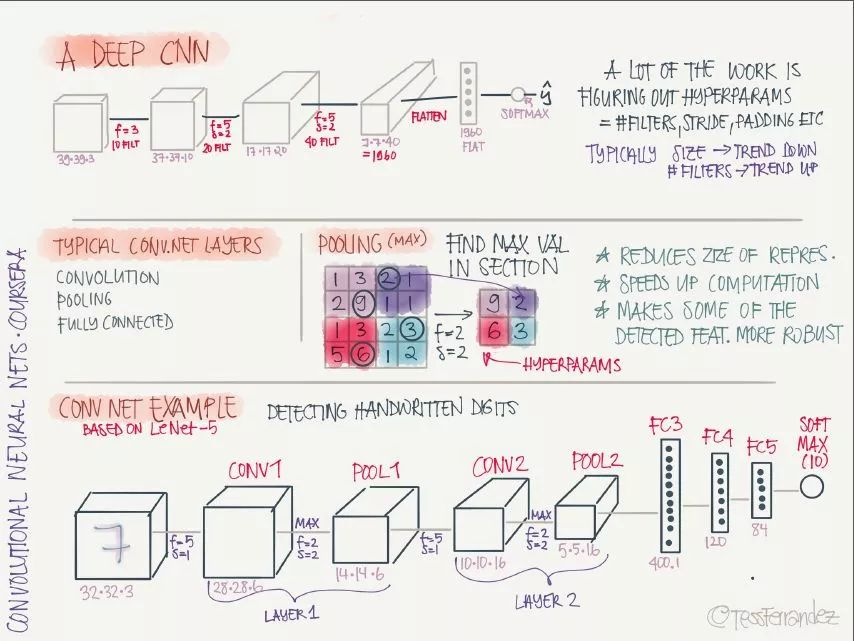 A DEEP CNN
39·39·3
f=3
10 FILT
37·37·10
f=5
s=2
20 FILT
17·17·20
f=5
s=2
40 FILT
7·7·40
=1960
FLATTEN
1960
FLAT
ŷ
SOFTMAX
A LOT OF THE WORK IS
FIGURING OUT HYPERPARAMS
= #FILTERS, STRIDE, PADDING ETC
TYPICALLY SIZE → TREND DOWN
#FILTERS → TREND UP
CONVOLUTIONAL NEURAL NETS · COURSERA
TYPICAL CONV.NET LAYERS
CONVOLUTION
POOLING
FULLY CONNECTED
POOLING (MAX)
FIND MAX VAL
IN SECTION
1 3 2 1
2 9 1 1
1 3 2 3
5 6 1 2
f=2
s=2
9 2
6 3
HYPERPARAMS
REDUCES ZIZE OF REPRES.
SPEEDS UP COMPUTATION
MAKES SOME OF THE
DETECTED FEAT. MORE ROBUST
CONV NET EXAMPLE
BASED ON LeNet-5
DETECTING HANDWRITTEN DIGITS
7
32·32·3
f=5
s=1
CONV1
28·28·6
MAX
f=2
s=2
POOL1
14·14·6
LAYER 1
f=5
s=1
CONV2
10·10·16
MAX
f=2
s=2
POOL2
5·5·16
LAYER 2
FC3
400.1
FC4
120
FC5
84
SOFT
MAX
(10)
@TessFerrandez